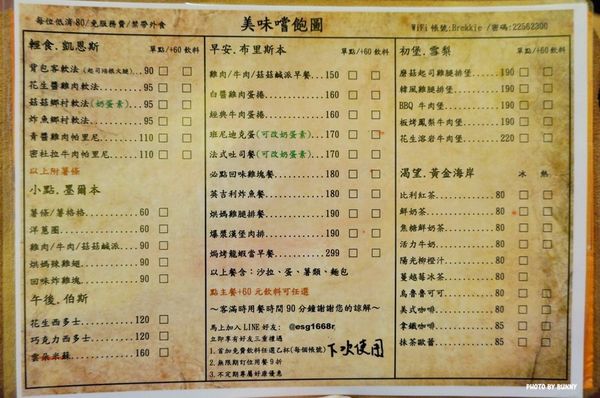 每位低消80/免服務費/禁帶外食
美味嚐飽圖
WiFi帳號:Brekkie /密碼:22562300
輕食.凱恩斯 單點/+60飲料
背包客軟法(起司鴻根火腿).90
花生醬雞肉軟法.....95
菇菇鄉村軟法(奶蛋素).95
炸魚鄉村軟法.......95
青醬雞肉帕里尼.....110
密杜拉牛肉帕里尼...110
以上附薯條
小點.墨爾本
薯條/薯格格........60
洋蔥圈.............60
雞肉/牛肉/菇菇鹹派..90
烘媽辣雞翅.........90
回味炸雞塊.........90
午後.伯斯
花生西多士........120
巧克力西多士......120
雲朵米蘇..........160
早安.布里斯本 單點/+60飲料
雞肉/牛肉/菇菇鹹派早餐..150
白醬雞肉蛋捲...........160
經典牛肉蛋捲...........160
班尼迪克蛋(可改奶蛋素).170
法式吐司餐(可改奶蛋素).170
必點回味雞塊餐.........180
英吉利炸魚餐...........180
烘媽雞腿排餐...........190
爆漿漢堡肉排...........190
焗烤龍蝦當早餐.........299
以上餐含：沙拉、蛋、薯類、麵包
點主餐+60元飲料可任選
～客滿時用餐時間90分鐘謝謝您的諒解～
馬上加入LINE好友: @esg1668r
立即享有好友三重禮遇
1.首加免費飲料任選乙杯(每個帳號)
下次使用
2.無限期訂位用餐9折
3.不定期專屬好康優惠
初堡.雪梨 單點/+60飲料
蘑菇起司雞腿排堡...190
韓風雞腿排堡.......190
BBQ 牛肉堡.........190
板烤鳳梨牛肉堡.....190
花生溶岩牛肉堡.....220
渴望.黃金海岸 冰 熱
比利紅茶...........60
鮮奶茶.............85
焦糖鮮奶茶.........85
活力牛奶...........60
陽光柳橙汁.........60
蔓越莓冰茶.........60
烏魯魯可可.........80
美式咖啡...........80
拿鐵咖啡...........85
抹茶歐蕾...........85
PHOTO BY BUNNY